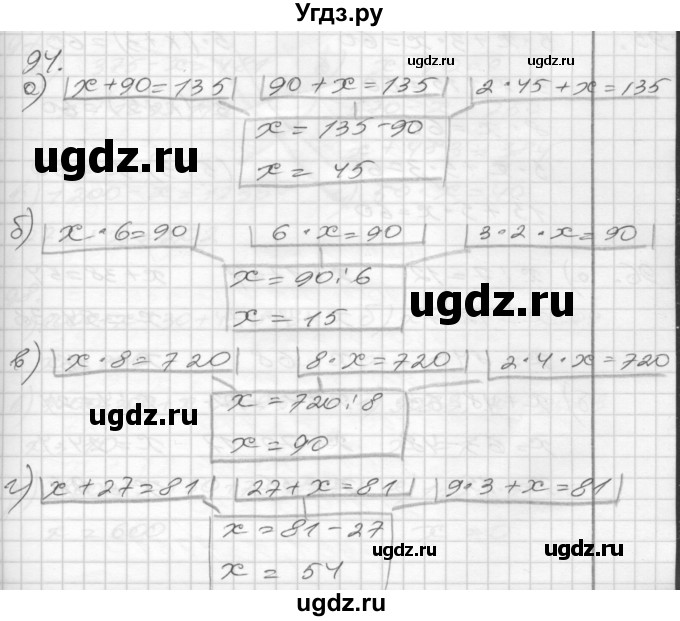 Угдз.ру
94.
ugdz.ru ugdz.ru
а) x + 90 = 135 90 + x = 135 2 · 45 + x = 135
x = 135 - 90
ugdz.ru
x = 45
б) x · 6 = 90 6 · x = 90 3 · 2 · x = 90
x = 90 : 6
ugdz.ru
x = 15
в) x · 8 = 720 8 · x = 720 2 · 4 · x = 720
x = 720 : 8
ugdz.ru
x = 90
г) x + 27 = 81 27 + x = 81 9 · 3 + x = 81
x = 81 - 27
ugdz.ru ugdz.ru
x = 54
ugdz.ru